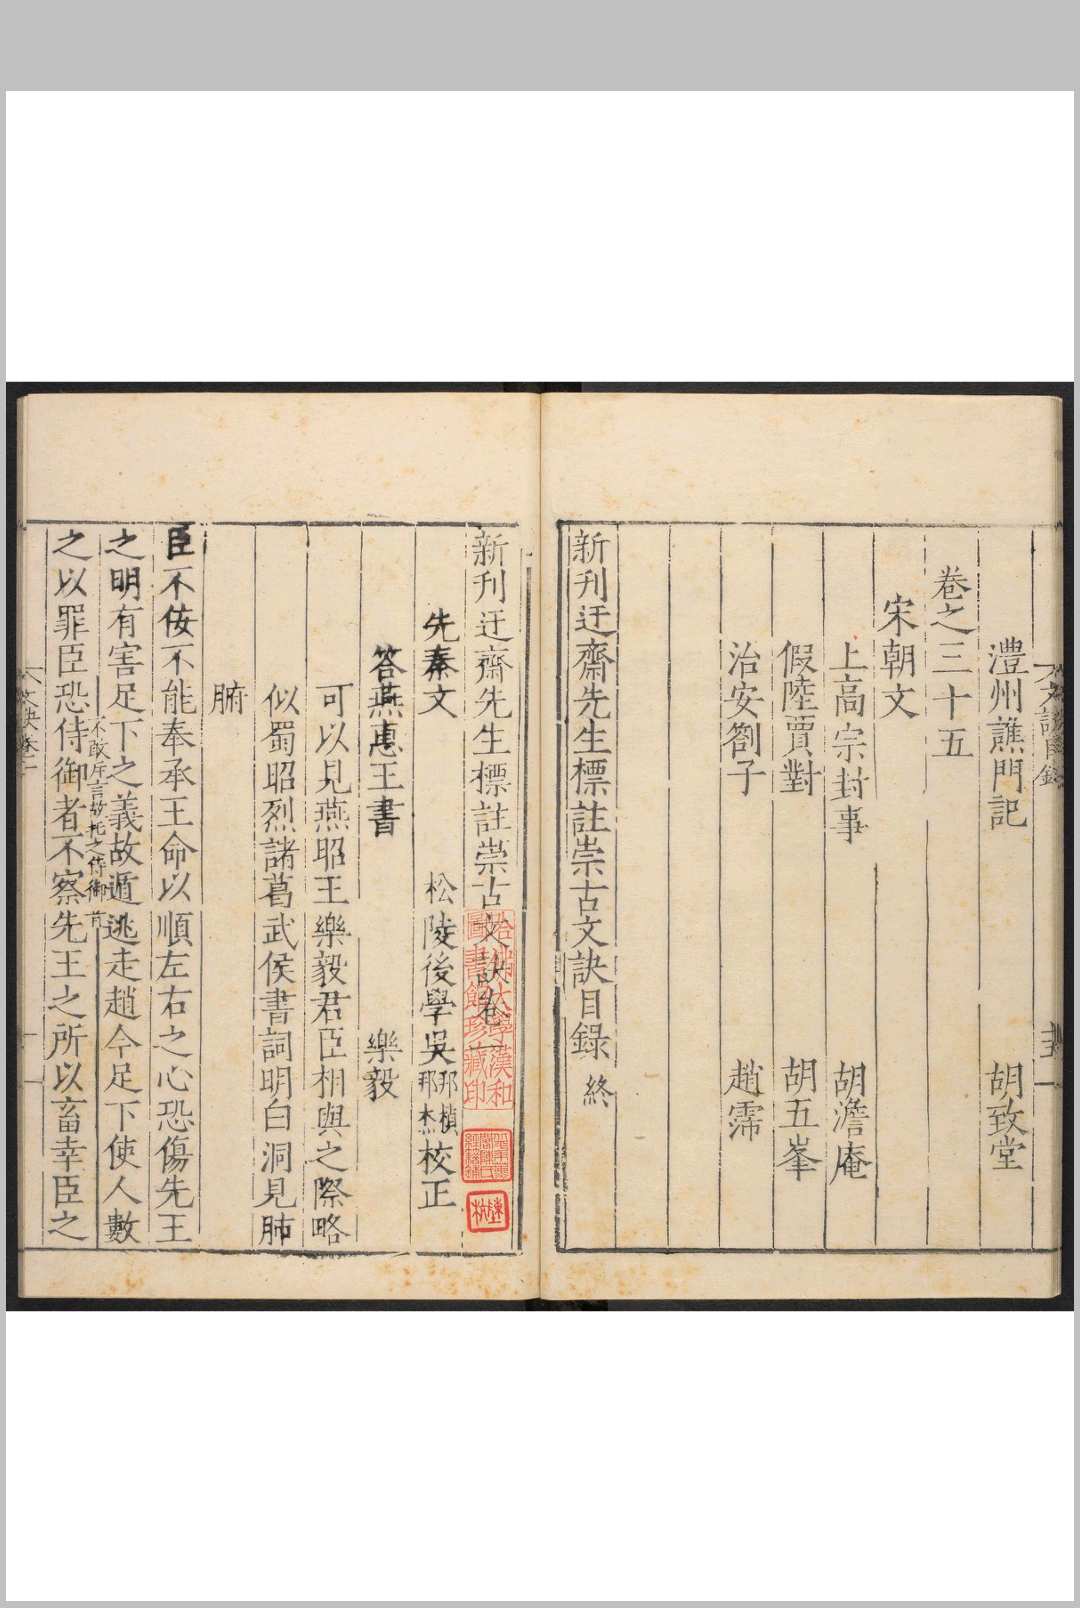 澧州譙門記 胡致堂
卷之三十五
宋朝文
上高宗封事 胡澹庵
假陸賈對 胡五峯
治安劄子 趙霈
新刊迂齋先生標註崇古文訣目錄 終
新刊迂齋先生標註崇古文訣卷
先秦文 松陵後學吳邦楨邦杰校正
答燕惠王書 樂毅
可以見燕昭王樂毅君臣相與之際略
似蜀昭烈諸葛武侯書詞明白洞見肺
腑
臣不佞不能奉承王命以順左右之心恐傷先王
之明有害足下之義故遁逃走趙今足下使人數
不敢斥言故托之侍御者
之以罪臣恐侍御者不察先王之所以畜幸臣之
哈佛大學漢和圖書館珍藏印